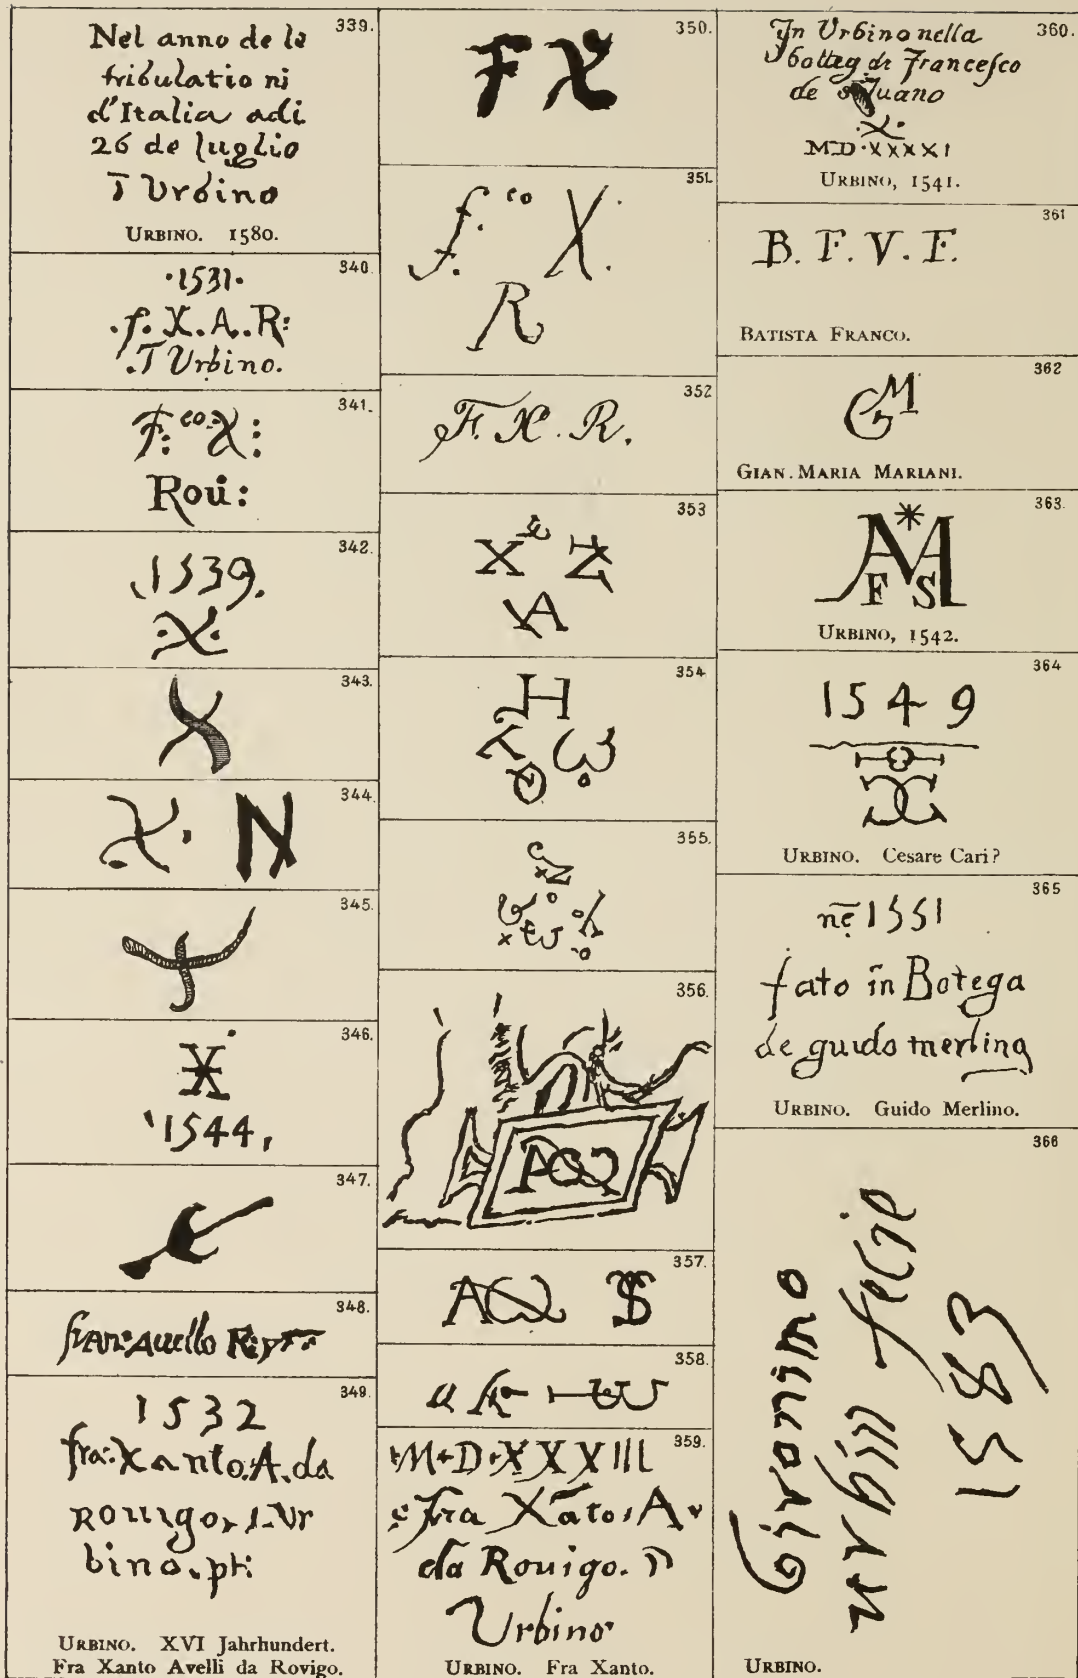 339.
Nel anno de le
tribulatio ni
d'Italia adi
26 de luglio
T Urbino
URBINO. 1580.
340.
·1531·
.f. X. A. R:
.T Urbino.
341.
F:co X:
Roui:
342.
.1539.
·X·
343.
X
344.
X. N
345.
346.
X
'1544,
347.
348.
fran: Auello R:
349.
1532
fra: Xanto. A. da
ROuigo, I. Vr
bino. pt:
URBINO. XVI Jahrhundert.
Fra Xanto Avelli da Rovigo.
350.
F X
351.
f. co X.
R
352
F. X. R.
353
X Z
A
354.
H
355.
356.
357.
358.
359.
M·D·XXXIII
Fra Xãto, A
da Rouigo. I
Urbino
URBINO. Fra Xanto.
360.
In Urbino nella
botteg di Francesco
de Siluano
X
MD·XXXXI
URBINO, 1541.
361
B. F. V. F.
BATISTA FRANCO.
362
GM
GIAN. MARIA MARIANI.
363.
M
F S
URBINO, 1542.
364
1549
URBINO. Cesare Cari?
365
nẽ 1551
fato in Botega
de guido merlino
URBINO. Guido Merlino.
366
Gironimo
urbin fecie
1583
URBINO.